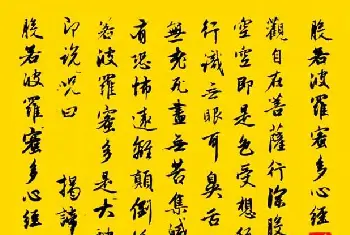 般若波羅蜜多心經
觀自在菩薩行深般
空空即是色受想行
行識無眼耳鼻舌
無老死盡無苦集滅
有恐怖遠離顛倒
若波羅蜜多是大神
即說咒曰 揭諦
般若波羅蜜多心經